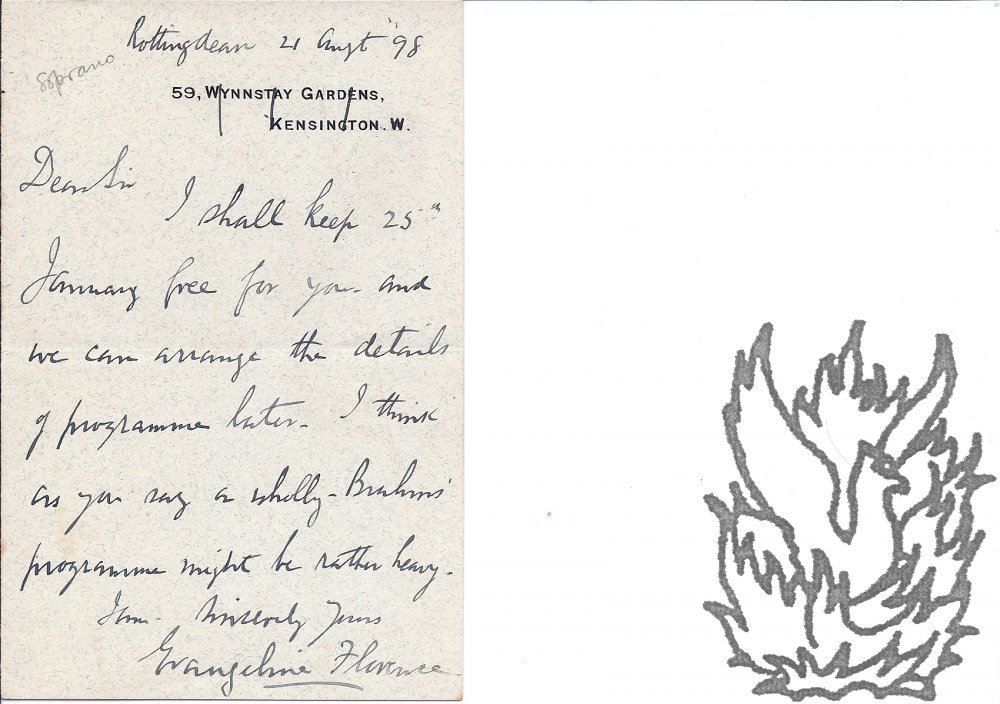 Rottingdean 21 Augt '98
Soprano
59, WYNNSTAY GARDENS,
KENSINGTON. W.
Dear Sir
I shall keep 25th
January free for you and
we can arrange the details
of programme later. I think
as you say a wholly-Brahms
programme might be rather heavy.
I am. Sincerely Yours
Evangeline Florence